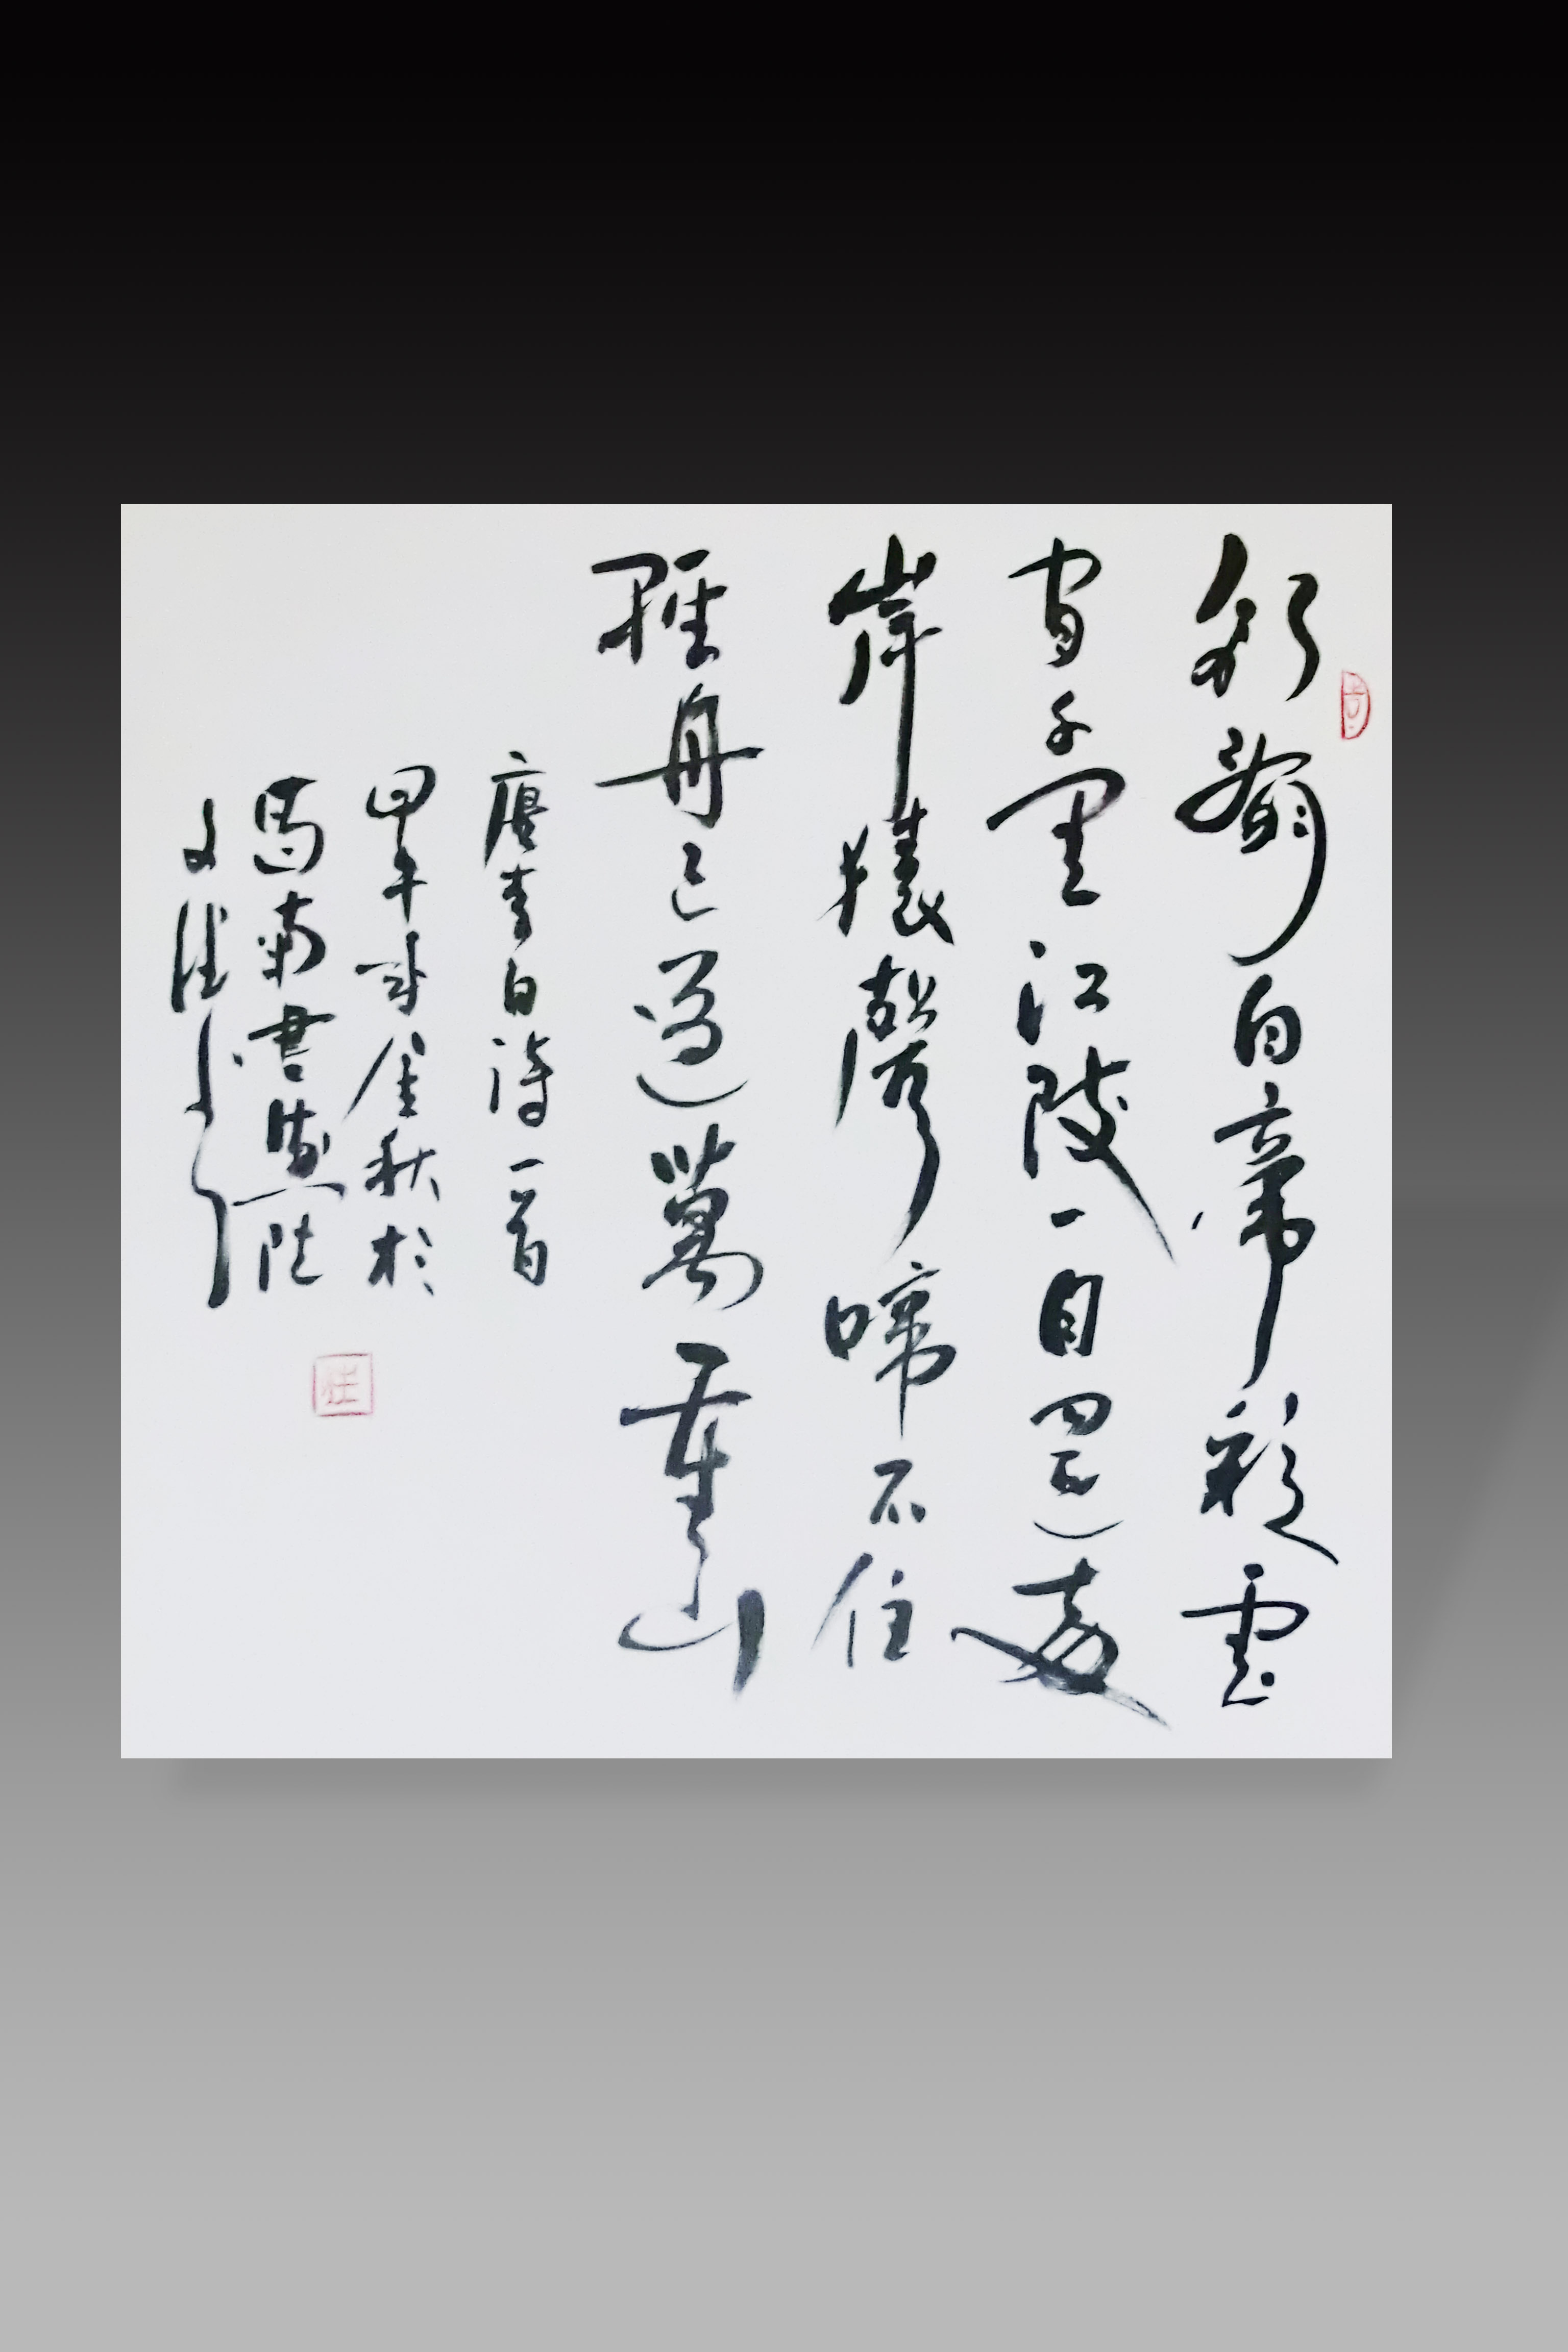 朝辭白帝彩雲
間千里江陵一日還兩
岸猿聲啼不住
輕舟已過萬重山
唐李白詩一首
甲午金秋於
南書院
文佳